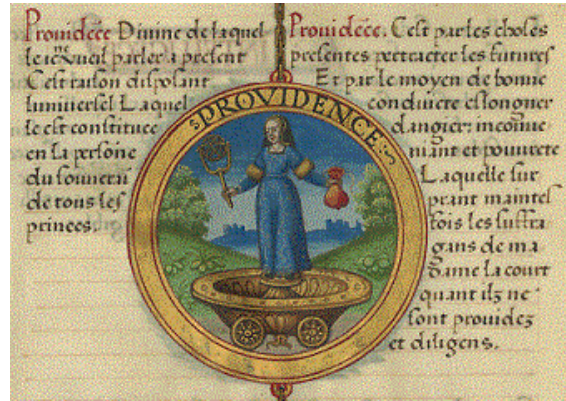 Providēce Divine de laquel
le ie ne vueil parler a present
Cest raison disposant
luniversel Laquel
le est constituee
en la persōne
du souuerā
de tous les
princes.
PROVIDENCE
Providēce. Cest par les choses
presentes pertracter les futures
Et par le moyen de bonne
conduicte eslongner
dangier: incōue
niant et pouurete
Laquelle sur
prant maintes
fois les suffra
gans de ma
dame la court
quant ilz ne
sont providez
et diligens.